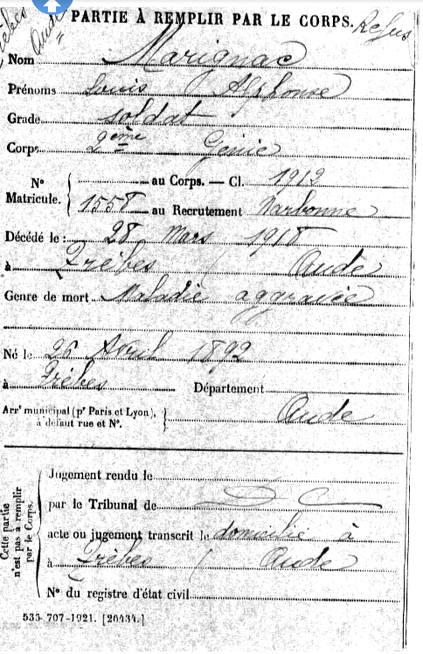 Trèbes
Aude
Refus
PARTIE À REMPLIR PAR LE CORPS.
Nom Marignac
Prénoms Louis Alphonse
Grade soldat
Corps 2ème Génie
N° Matricule. { au Corps. — Cl. 1912
1558 au Recrutement Narbonne
Décédé le : 28 Mars 1918
à Trèbes ( Aude
Genre de mort Maladie aggravée
Né le 26 Avril 1892
à Trèbes Département
Arrt municipal (pr Paris et Lyon), à défaut rue et N°. { Aude
Cette partie n'est pas à remplir par le Corps.
Jugement rendu le
par le Tribunal de
acte ou jugement transcrit le domicilié à
à Trèbes ( Aude
N° du registre d'état civil
535-707-1921. [26434.]